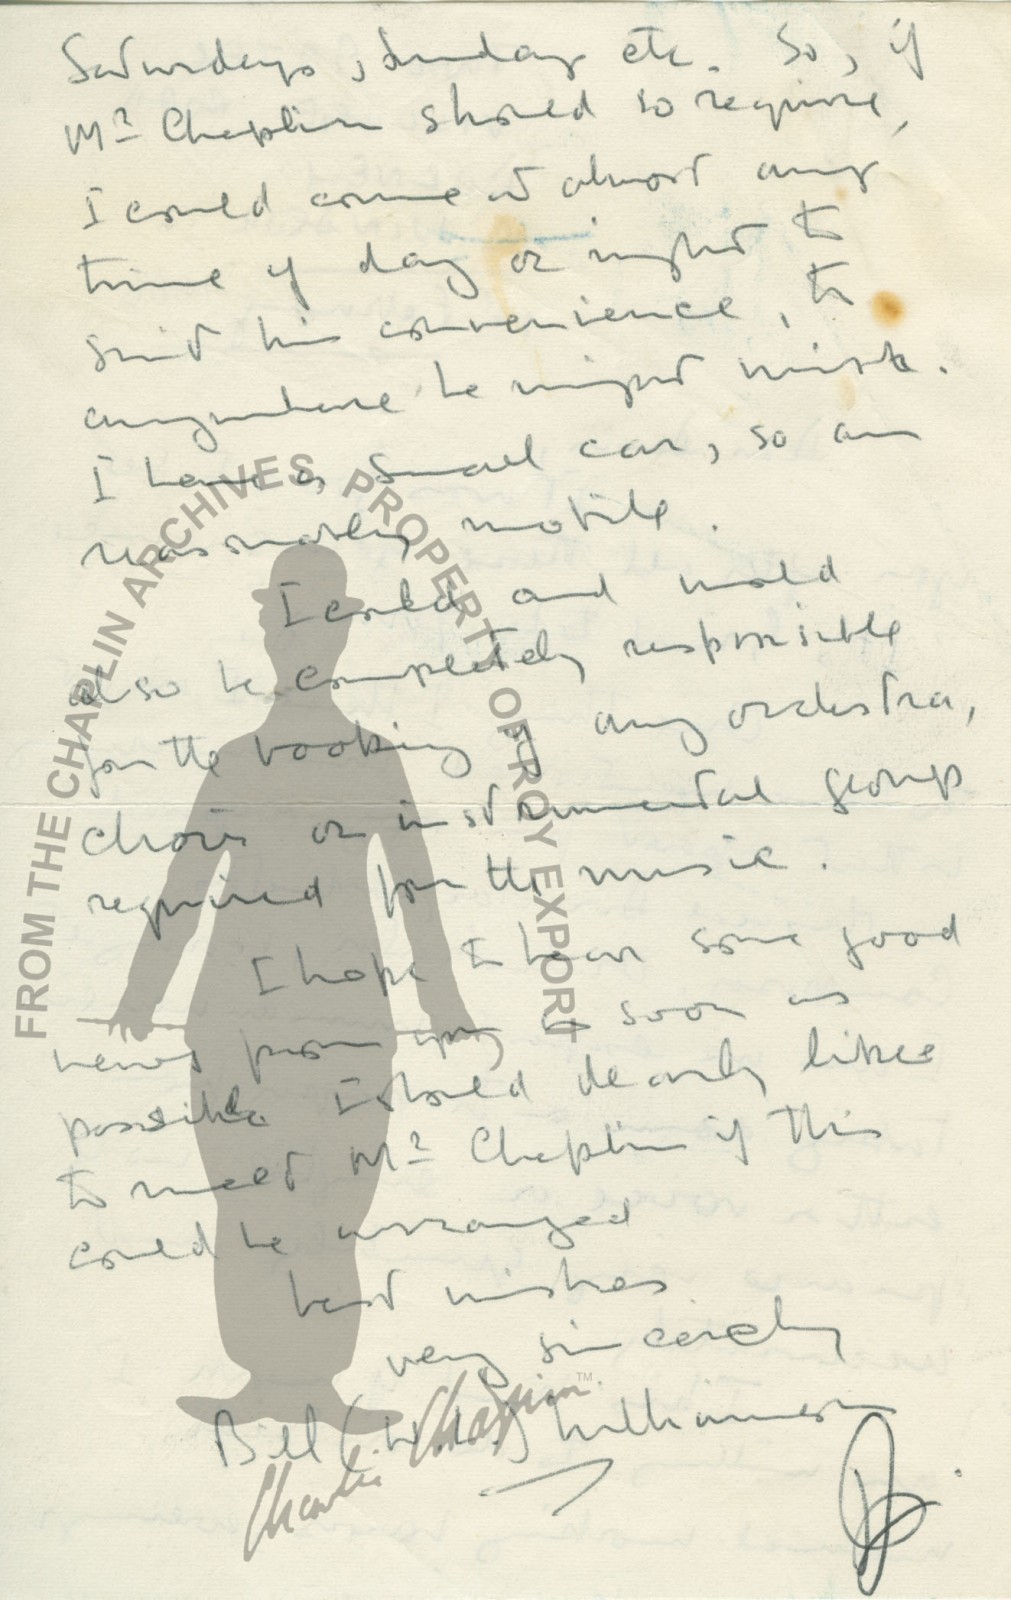 Saturdays, Sundays etc. So, if
Mr Chaplin should so require,
I could come at almost any
time of day or night, to
suit his convenience, to
anywhere he might wish.
I have a small car, so am
reasonably mobile.
I could and would
also be completely responsible
for the booking of any orchestra,
choir or instrumental group
required for the music.
I hope to hear some good
news from you as soon as
possible. I should dearly like
to meet Mr Chaplin if this
could be arranged
best wishes
very sincerely
Bill (W.L.) Williamson
FROM THE CHAPLIN ARCHIVES, PROPERTY OF ROY EXPORT
Charlie Chaplin™